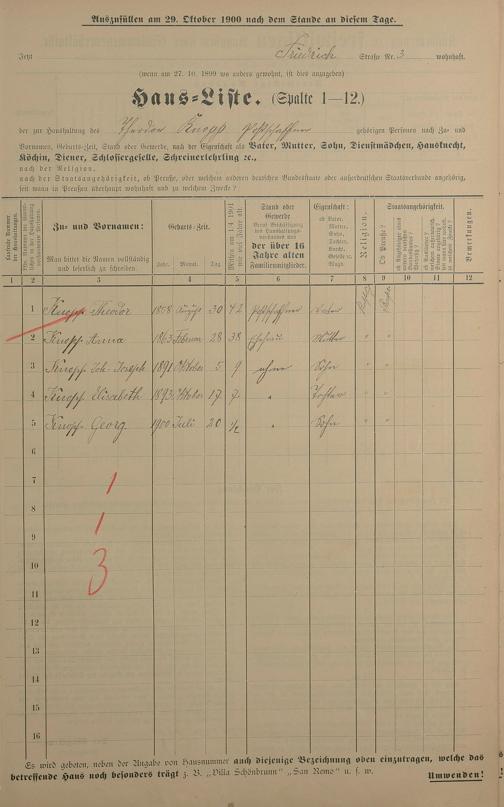 Auszufüllen am 29. Oktober 1900 nach dem Stande an diesem Tage.
Jetzt Friedrich Straße Nr. 3 wohnhaft.
(wenn am 27. 10. 1899 wo anders gewohnt, ist dies anzugeben)
Haus-Liste. (Spalte 1—12.)
der zur Haushaltung des Theodor Knopp Postschaffner gehörigen Personen nach Zu- und
Vornamen, Geburts-Zeit, Stand oder Gewerbe, nach der Eigenschaft als Vater, Mutter, Sohn, Dienstmädchen, Hausknecht,
Köchin, Diener, Schlossergeselle, Schreinerlehrling ꝛc.,
nach der Religion,
nach der Staatsangehörigkeit, ob Preuße, oder welchem anderen deutschen Bundesstaate oder außerdeutschen Staatsverbande angehörig,
seit wann in Preußen überhaupt wohnhaft und zu welchem Zwecke?
Zu- und Vornamen:
Man bittet die Namen vollständig und leserlich zu schreiben.
Geburts-Zeit.
Jahr. Monat. Tag
Stand oder Gewerbe
der über 16 Jahre alten Familienmitglieder.
Eigenschaft:
ob Vater, Mutter, Sohn, Tochter,
Religion.
Staatsangehörigkeit.
Ob Preuße?
Bemerkungen.
1 2 3 4 5 6 7 8 9 10 11 12
1 Knopp Theodor 1858 August 30 42 Postschaffner Vater
2 Knopp Anna 1863 Februar 28 38 Ehefrau Mutter " "
3 Knopp Joh. Joseph 1891 Oktober 5 9 ohne Sohn " "
4 Knopp Elisabeth 1893 Oktober 17 7 " Tochter " "
5 Knopp Georg 1900 Juli 20 ½ " Sohn " "
6
7
1
8
1
9
10
3
11
12
13
14
15
16
Es wird gebeten, neben der Angabe von Hausnummer auch diejenige Bezeichnung oben einzutragen, welche das
betreffende Haus noch besonders trägt z. B. „Villa Schönbrunn" „San Remo" u. s. w. Umwenden!